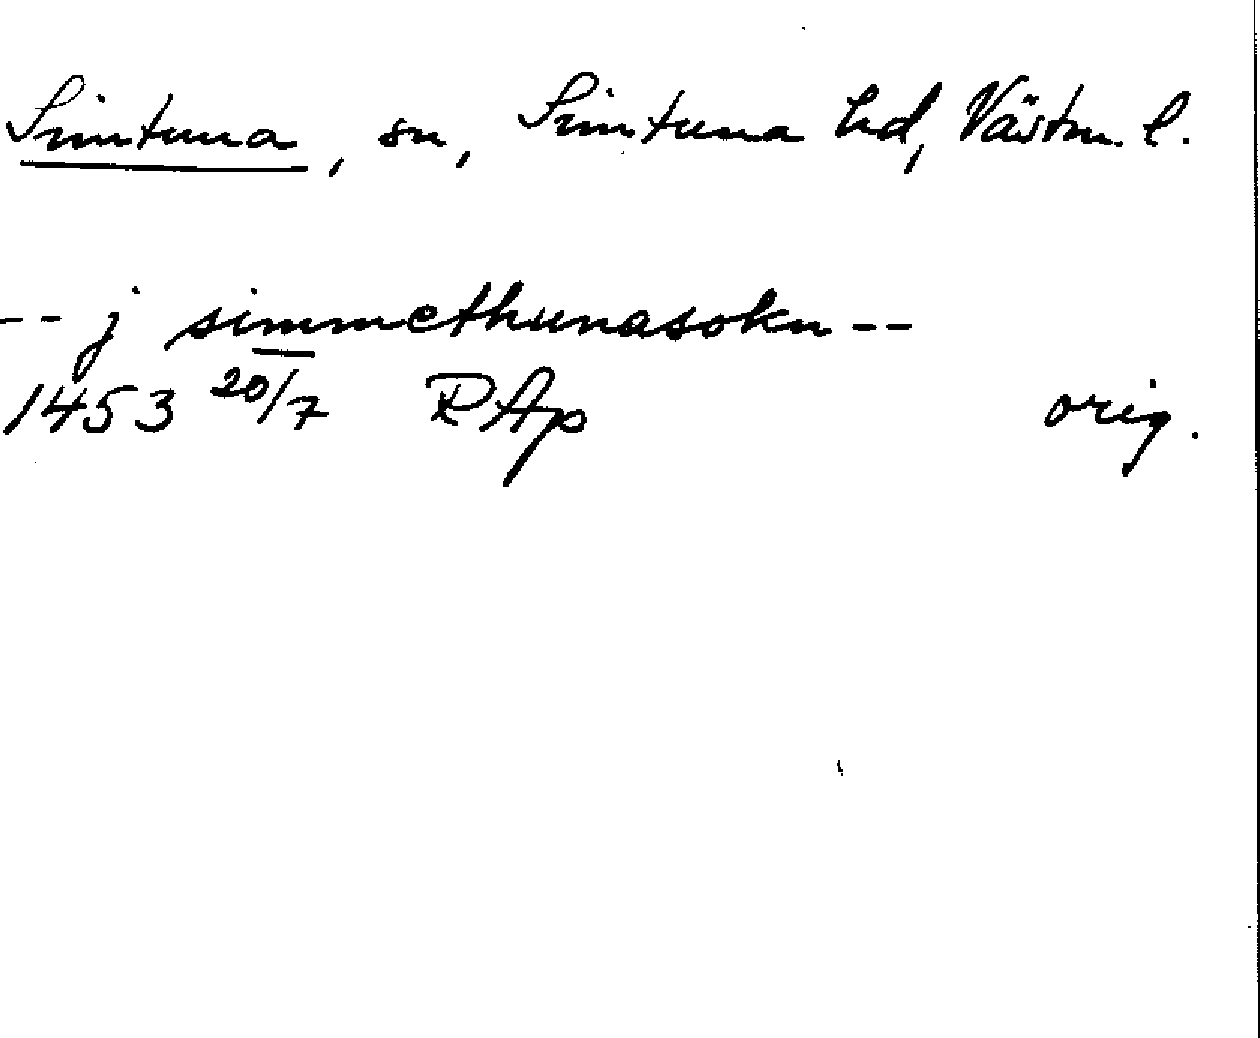 Simtuna, sn, Simtuna hd, Västm. l.
-- j simmethunasokn --
1453 20/7 RAp orig.